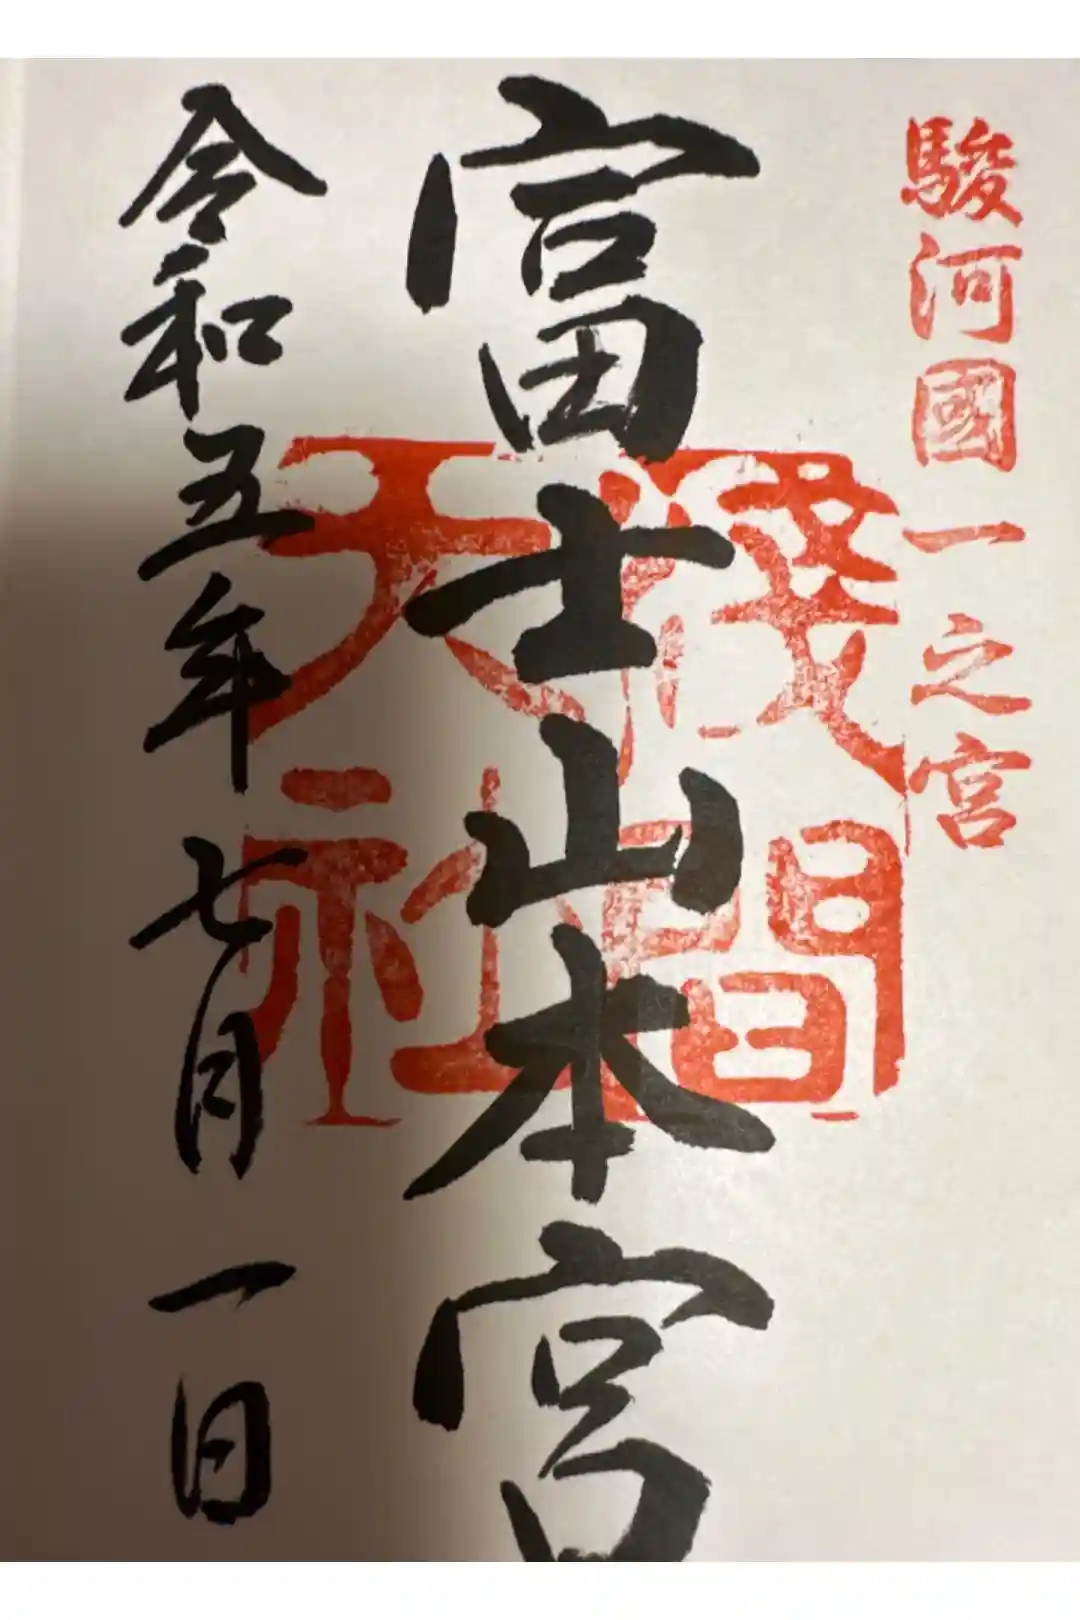 駿河國一之宮
富士山本宮
淺間大社
令和五年七月一日